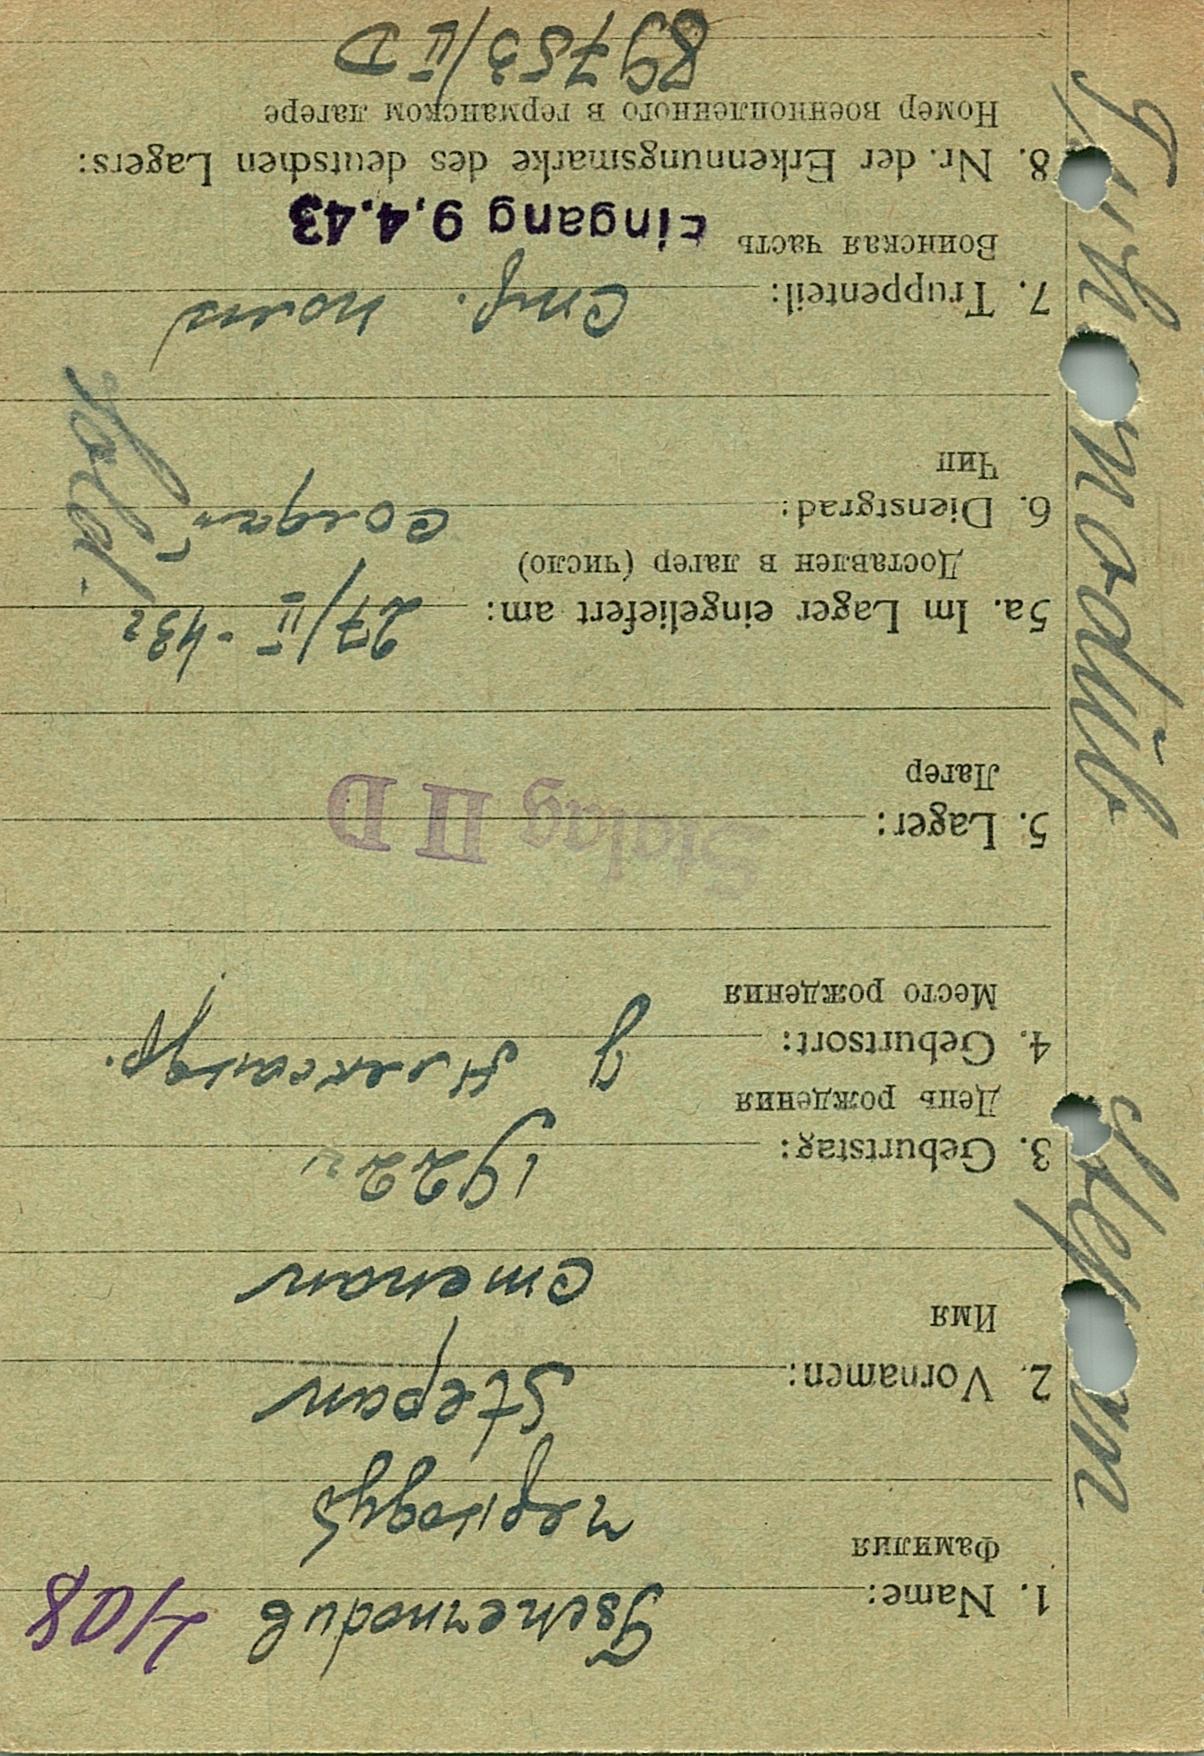 408
1. Name: Tschernodub
Фамилия
Чернодуб
Stepan
2. Vornamen:
Имя
Степан
3. Geburtstag: 1922 г
День рождения
4. Geburtsort: г Александр.
Место рождения
5. Lager: Stalag II D
Лагер
5a. Im Lager eingeliefert am: 27/II - 43 г
Доставлен в лагер (число)
6. Dienstgrad: солдат
Чип
Sold.
7. Truppenteil: Стр. полк
Воинская часть
Eingang 9.4.43
8. Nr. der Erkennungsmarke des deutschen Lagers:
Номер военнопленного в германском лагере
89753/II D
Stepan